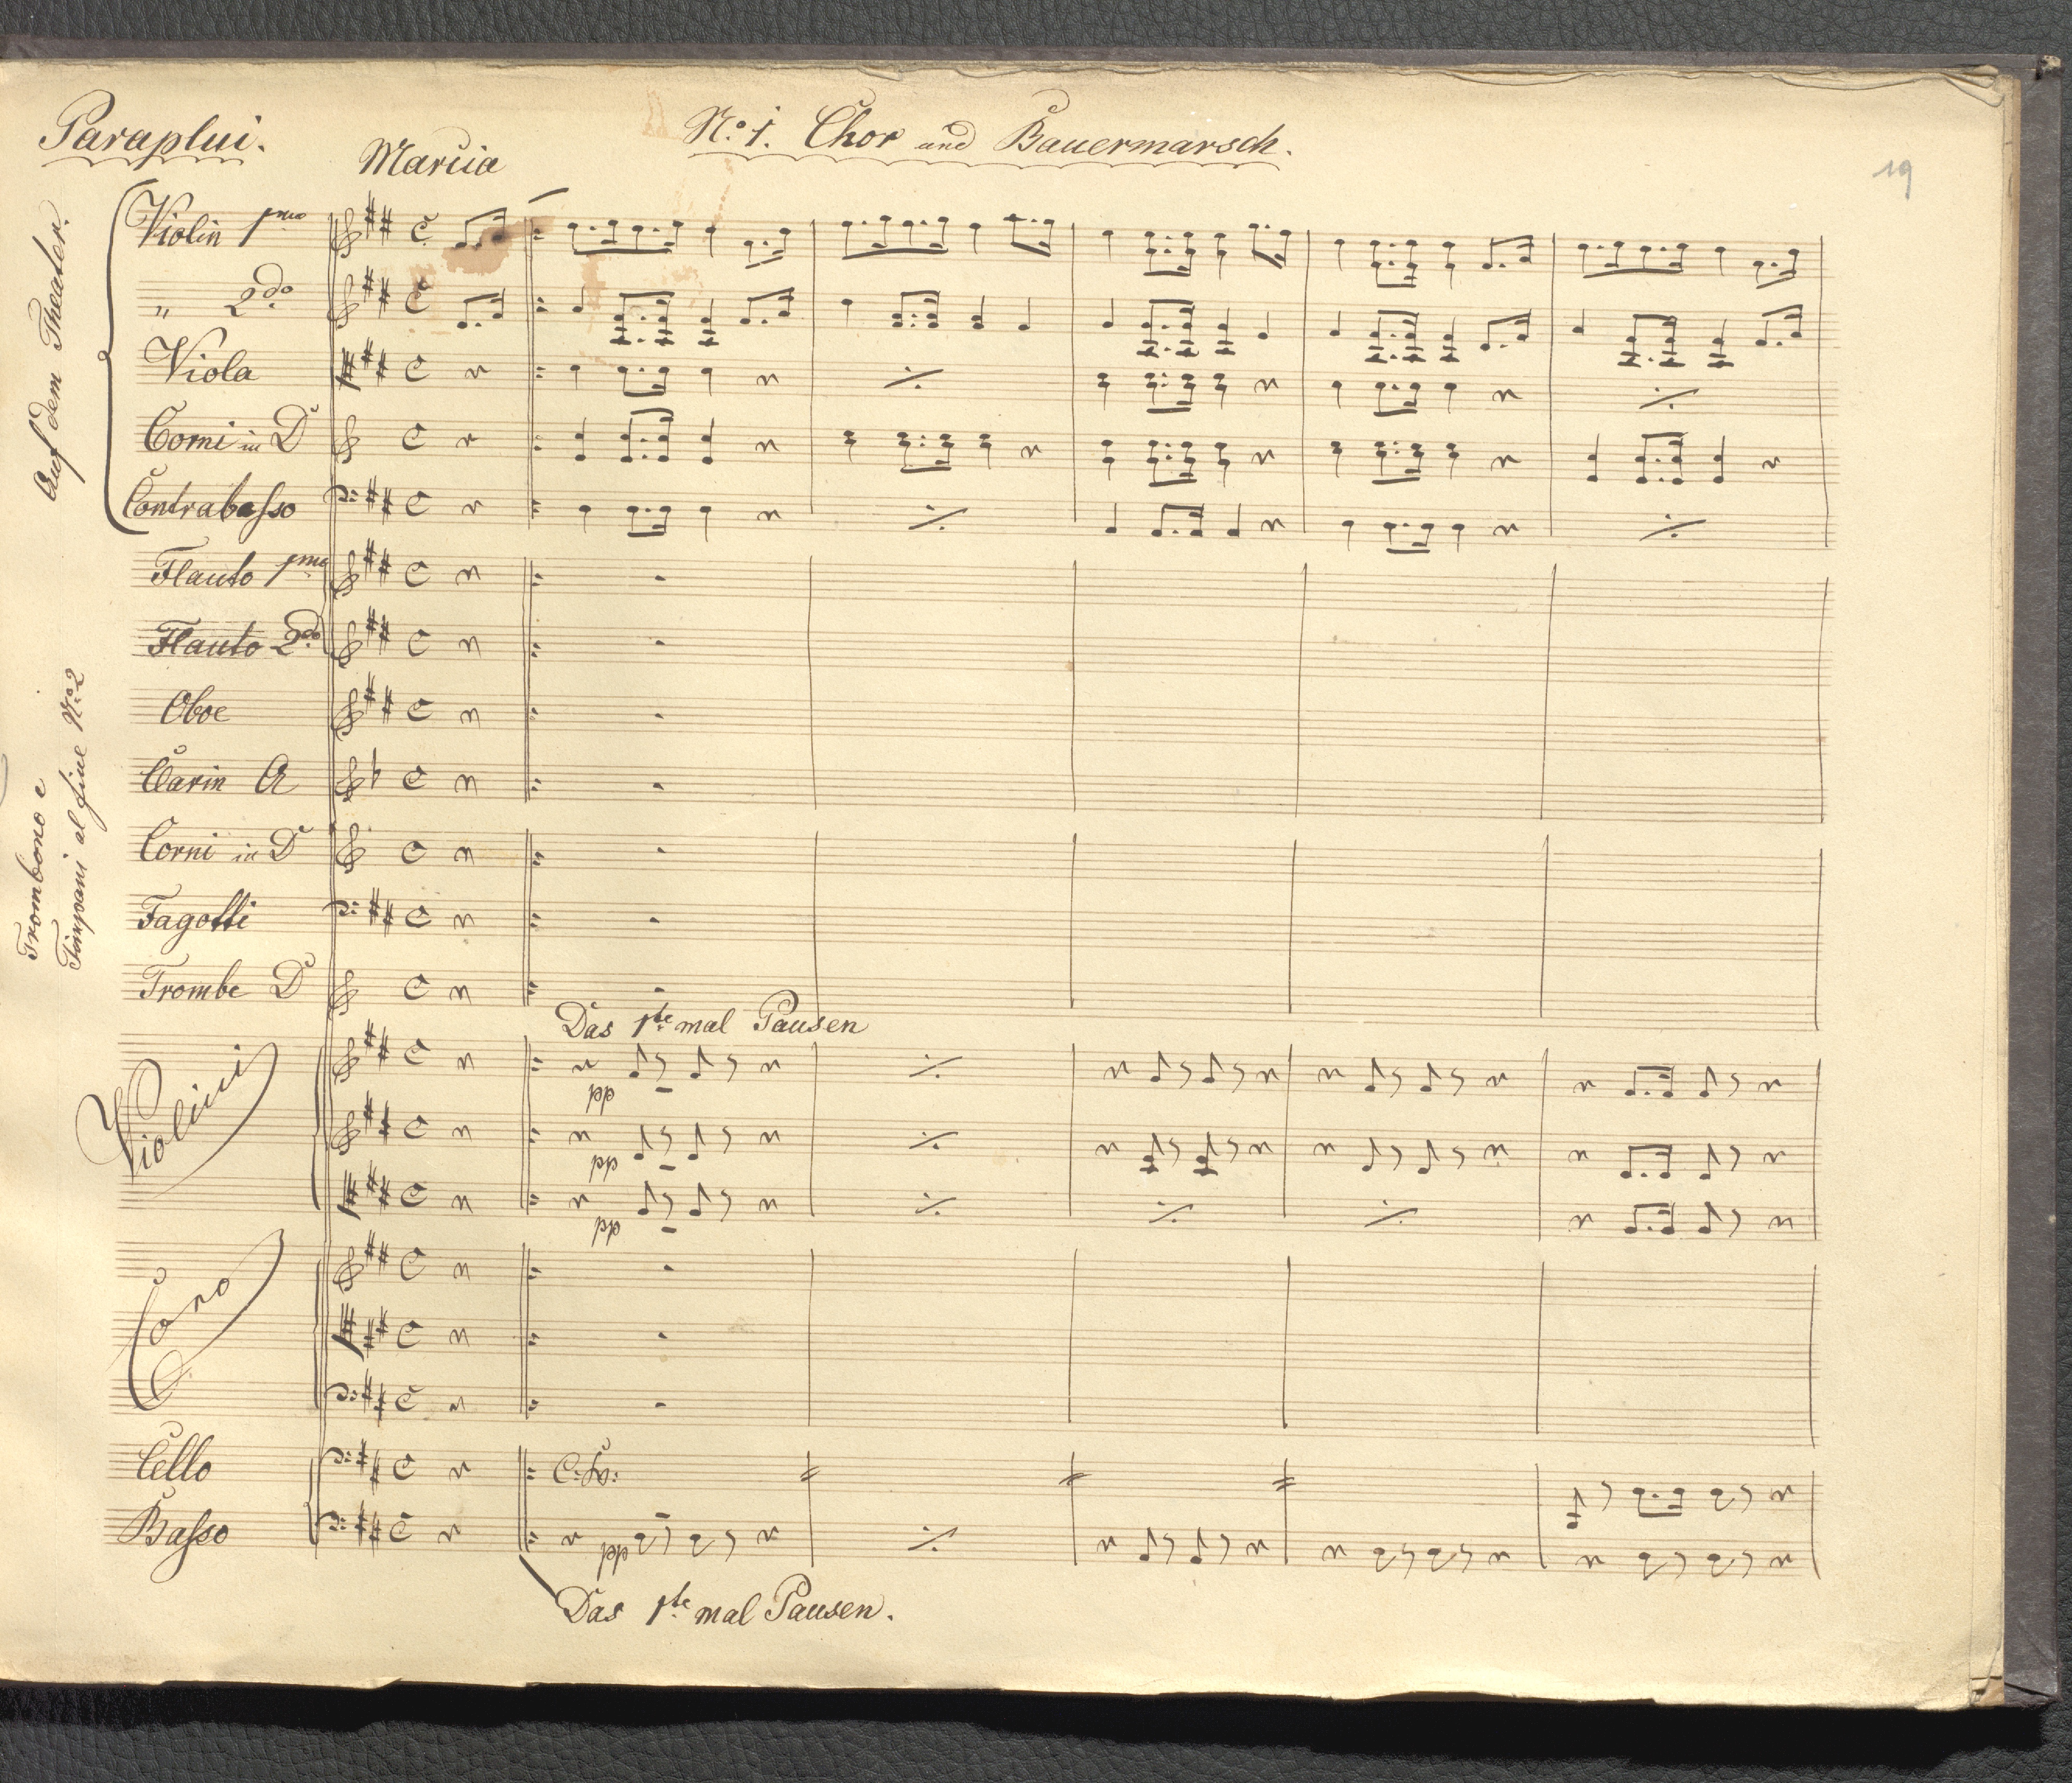 Paraplui.
Marcia
No. 1. Chor und Bauermarsch.
19
Auf dem Theater.
Violin 1mo
" 2do
Viola
Corni in D
Contrabasso
Flauto 1mo
Flauto 2do
Oboe
Clarin A
Corni in D
Fagotti
Trombe D
Trombono e
Timpani al fine No. 2
Das 1te mal Pausen
Violini
pp
pp
pp
Coro
Cello
C: Bo:
Basso
pp
Das 1te mal Pausen.